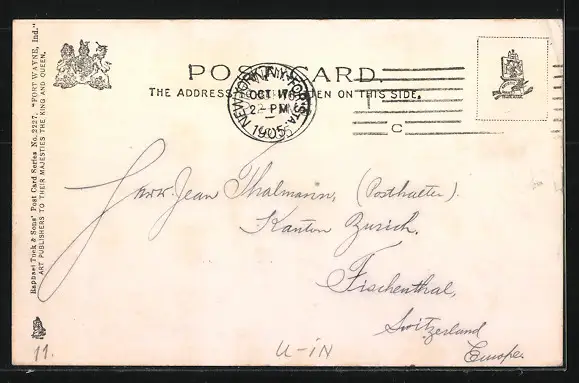 Raphael Tuck & Sons' Post Card Series No. 2227. "FORT WAYNE, Ind."
ART PUBLISHERS TO THEIR MAJESTIES THE KING AND QUEEN.
POST CARD.
THE ADDRESS TO BE WRITTEN ON THIS SIDE.
NEW YORK, N.Y. STA.
OCT 17
2- PM
1905
C
Herr. Jean Thalmann, (Posthalter).
Kanton Zurich.
Fischenthal,
Switzerland
Europe.
11.
U-iN